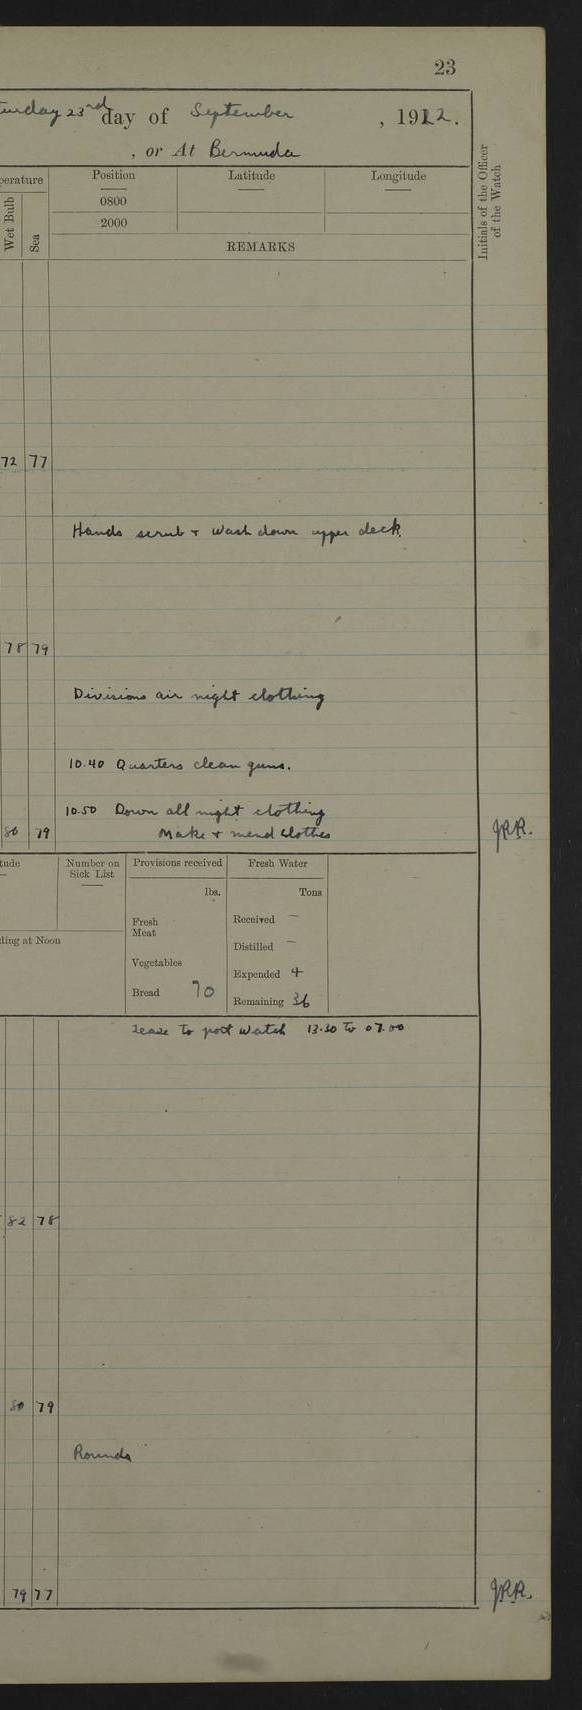 23
turday 23rd day of September , 1922.
, or At Bermuda
perature
Position
Latitude
Longitude
Initials of the Officer of the Watch
Wet Bulb
Sea
0800
2000
REMARKS
72 77
Hands scrub + wash down upper deck.
78 79
Divisions air night clothing
10.40 Quarters clean guns.
10.50 Down all night clothing
80 79 Make + mend clothes JRR.
tude
Number on Sick List
Provisions received
Fresh Water
lbs.
Tons
Fresh Meat
Received —
ding at Noon
Distilled —
Vegetables
Expended 4
Bread 70
Remaining 36
Leave to port watch 13.30 to 07.00
82 78
80 79
Rounds
79 77 JRR.